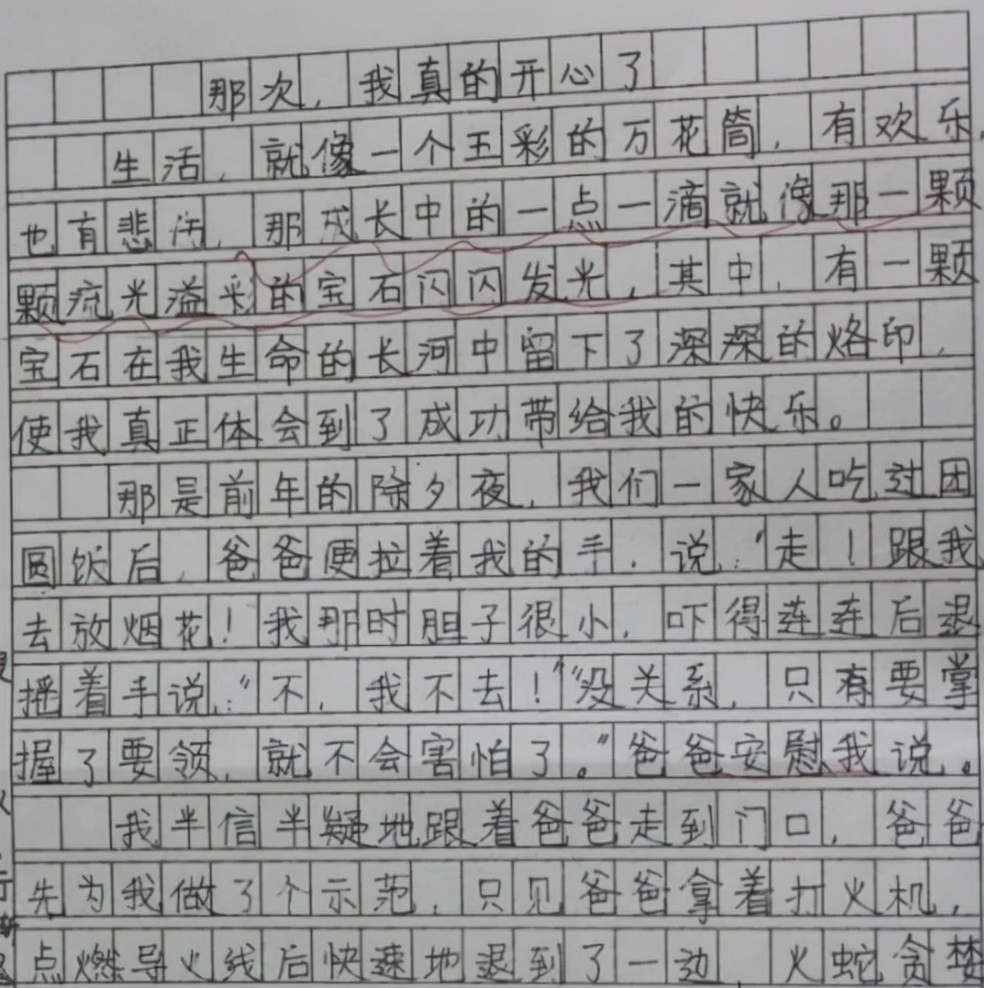 那次，我真的开心了
生活，就像一个五彩的万花筒，有欢乐，
也有悲伤，那成长中的一点一滴就像那一颗
颗流光溢彩的宝石闪闪发光，其中，有一颗
宝石在我生命的长河中留下了深深的烙印，
使我真正体会到了成功带给我的快乐。
那是前年的除夕夜，我们一家人吃过团
圆饭后，爸爸便拉着我的手，说："走！跟我
去放烟花！我那时胆子很小，吓得连连后退
摇着手说："不，我不去！""没关系，只有要掌
握了要领，就不会害怕了。"爸爸安慰我说。
我半信半疑地跟着爸爸走到门口，爸爸
先为我做了个示范，只见爸爸拿着打火机，
点燃导火线后快速地退到了一边，火蛇贪婪